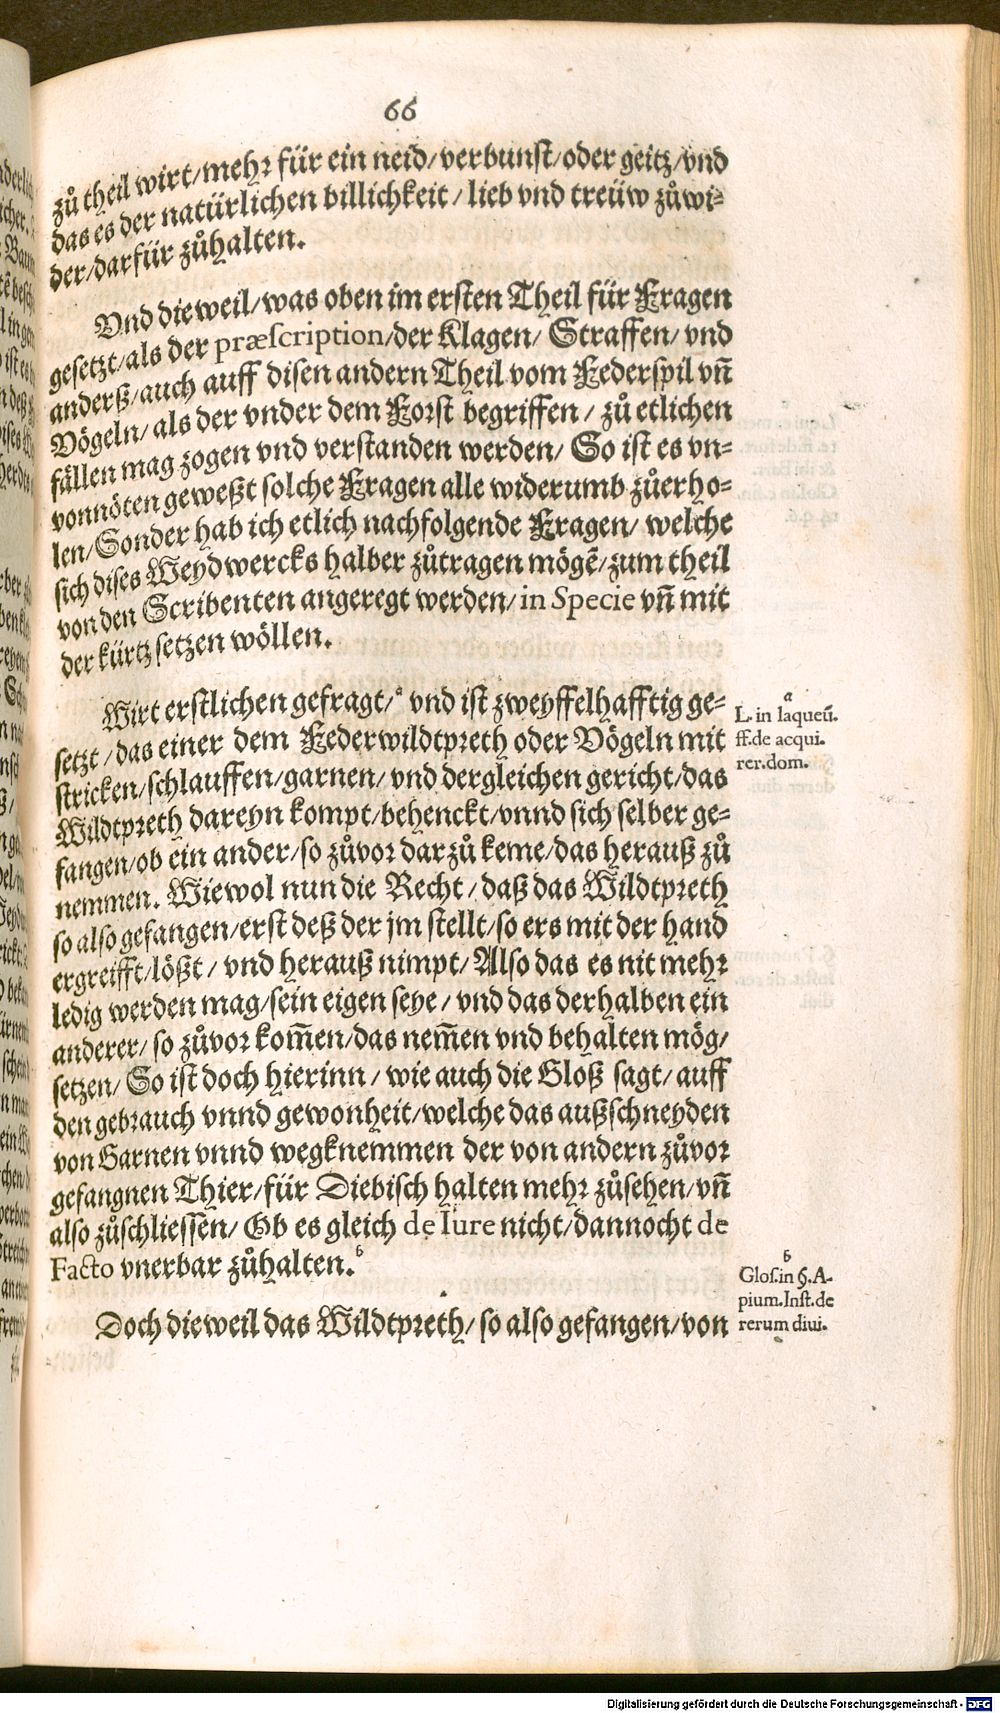 66
zů theil wirt/mehr für ein neid/verbunst/oder geitz/vnd
das es der natürlichen billichkeit/lieb vnd treüw zůwi-
der/darfür zůhalten.
Vnd dieweil/was oben im ersten Theil für Fragen
gesetzt/als der præscription/der Klagen/ Straffen/ vnd
anderß/auch auff disen andern Theil vom Federspil vn̄
Vögeln/ als der vnder dem Forst begriffen/ zů etlichen
fällen mag zogen vnd verstanden werden/ So ist es vn-
vonnöten geweßt solche Fragen alle widerumb zůerho-
len/Sonder hab ich etlich nachfolgende Fragen/ welche
sich dises Weydwercks halber zůtragen mögē/zum theil
von den Scribenten angeregt werden/in Specie vn̄ mit
der kürtz setzen wöllen.
Wirt erstlichen gefragt/ᵃ vnd ist zweyffelhafftig ge-
setzt/das einer dem Federwildtpreth oder Vögeln mit
stricken/schlauffen/garnen/ vnd dergleichen gericht/das
Wildtpreth dareyn kompt/behenckt/vnnd sich selber ge-
fangen/ob ein ander/so zůvor darzů keme/das herauß zů
nemmen. Wiewol nun die Recht/daß das Wildtpreth
so also gefangen/erst deß der jm stellt/so ers mit der hand
ergreifft/lößt/ vnd herauß nimpt/Also das es nit mehr
ledig werden mag/sein eigen seye/ vnd das derhalben ein
anderer/ so zůvor kom̄en/das nem̄en vnd behalten mög/
setzen/ So ist doch hierinn/ wie auch die Gloß sagt/ auff
den gebrauch vnnd gewonheit/welche das außschneyden
von Garnen vnnd wegknemmen der von andern zůvor
gefangnen Thier/für Diebisch halten mehr zůsehen/vn̄
also zůschliessen/ Ob es gleich de Iure nicht/dannocht de
Facto vnerbar zůhalten.ᵇ
Doch dieweil das Wildtpreth/ so also gefangen/von
a
L. in laqueū.
ff. de acqui.
rer. dom.
b
Glos. in §. A-
pium. Inst. de
rerum diui.
Digitalisierung gefördert durch die Deutsche Forschungsgemeinschaft - DFG